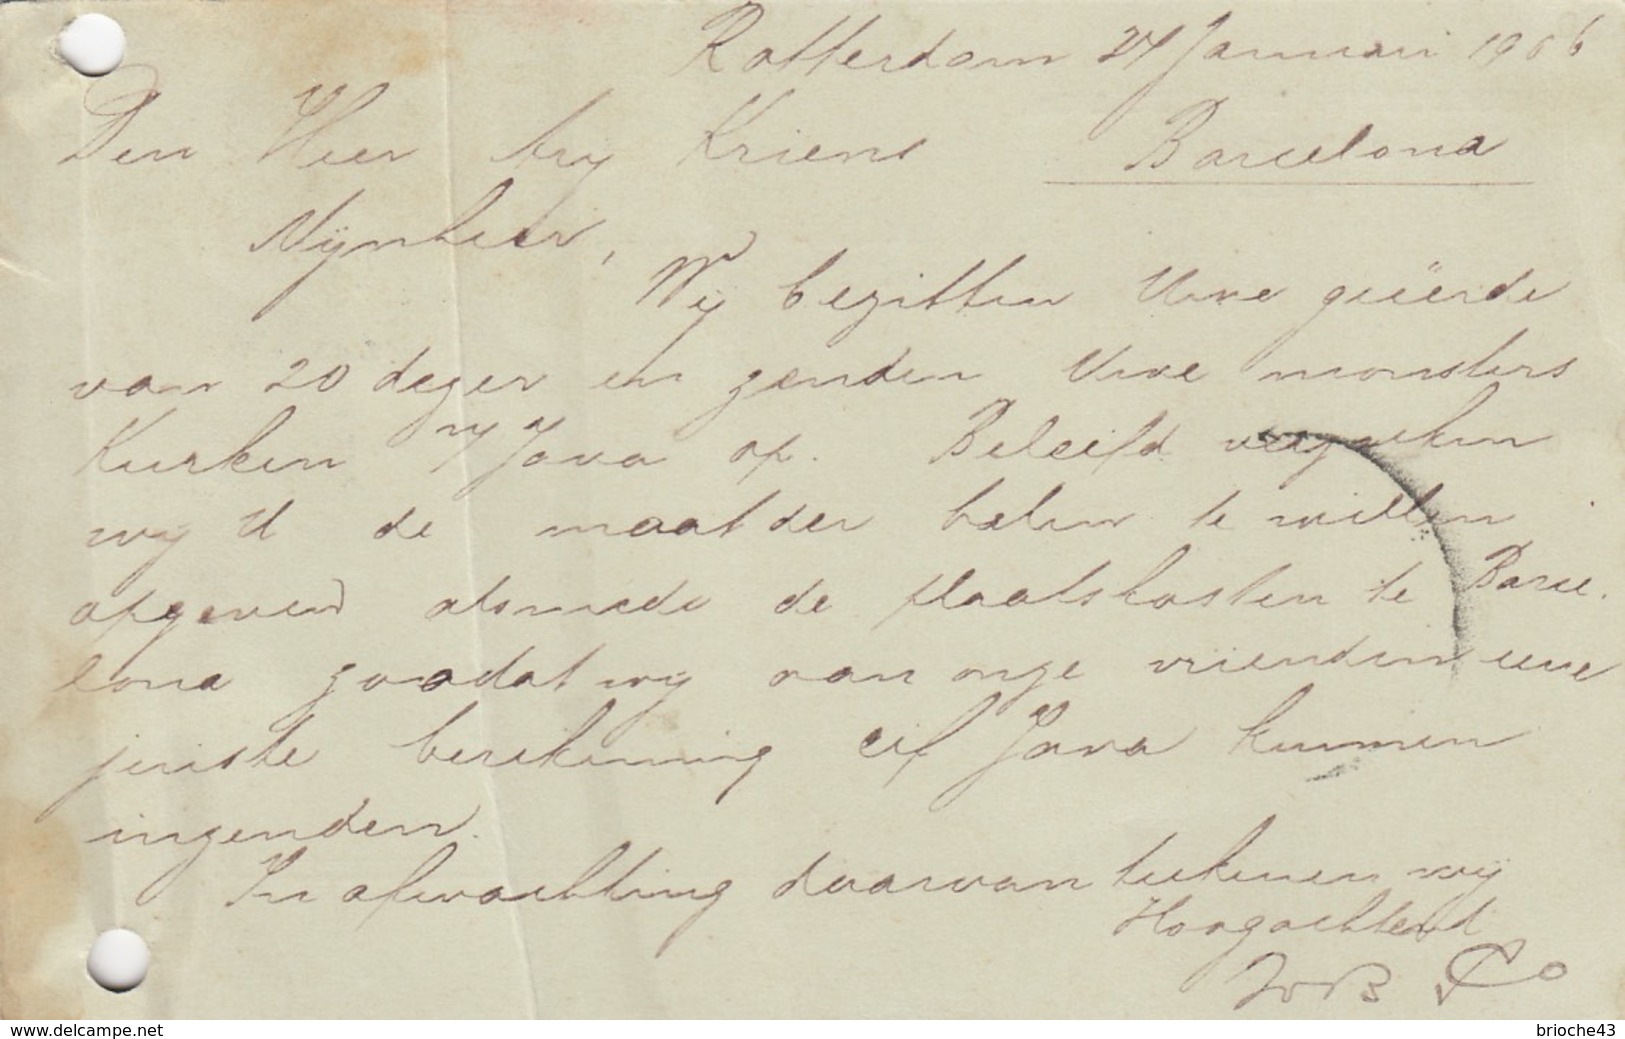 Rotterdam 24 Januari 1906
Den Heer Ary Kriens Barcelona
Mijnheer,
Wij bezitten Uwe geëerde
van 20 dezer en zenden Uwe monsters
Kurken Java op. Beleefd verzoeken
wij U de maat der balen te willen
opgeven alsmede de plaatskosten te Barce-
lona zoodat wij aan onze vrienden eene
juiste berekening cif Java kunnen
inzenden.
In afwachting daarvan teekenen wij
Hoogachtend
& Co
www.delcampe.net
brioche43